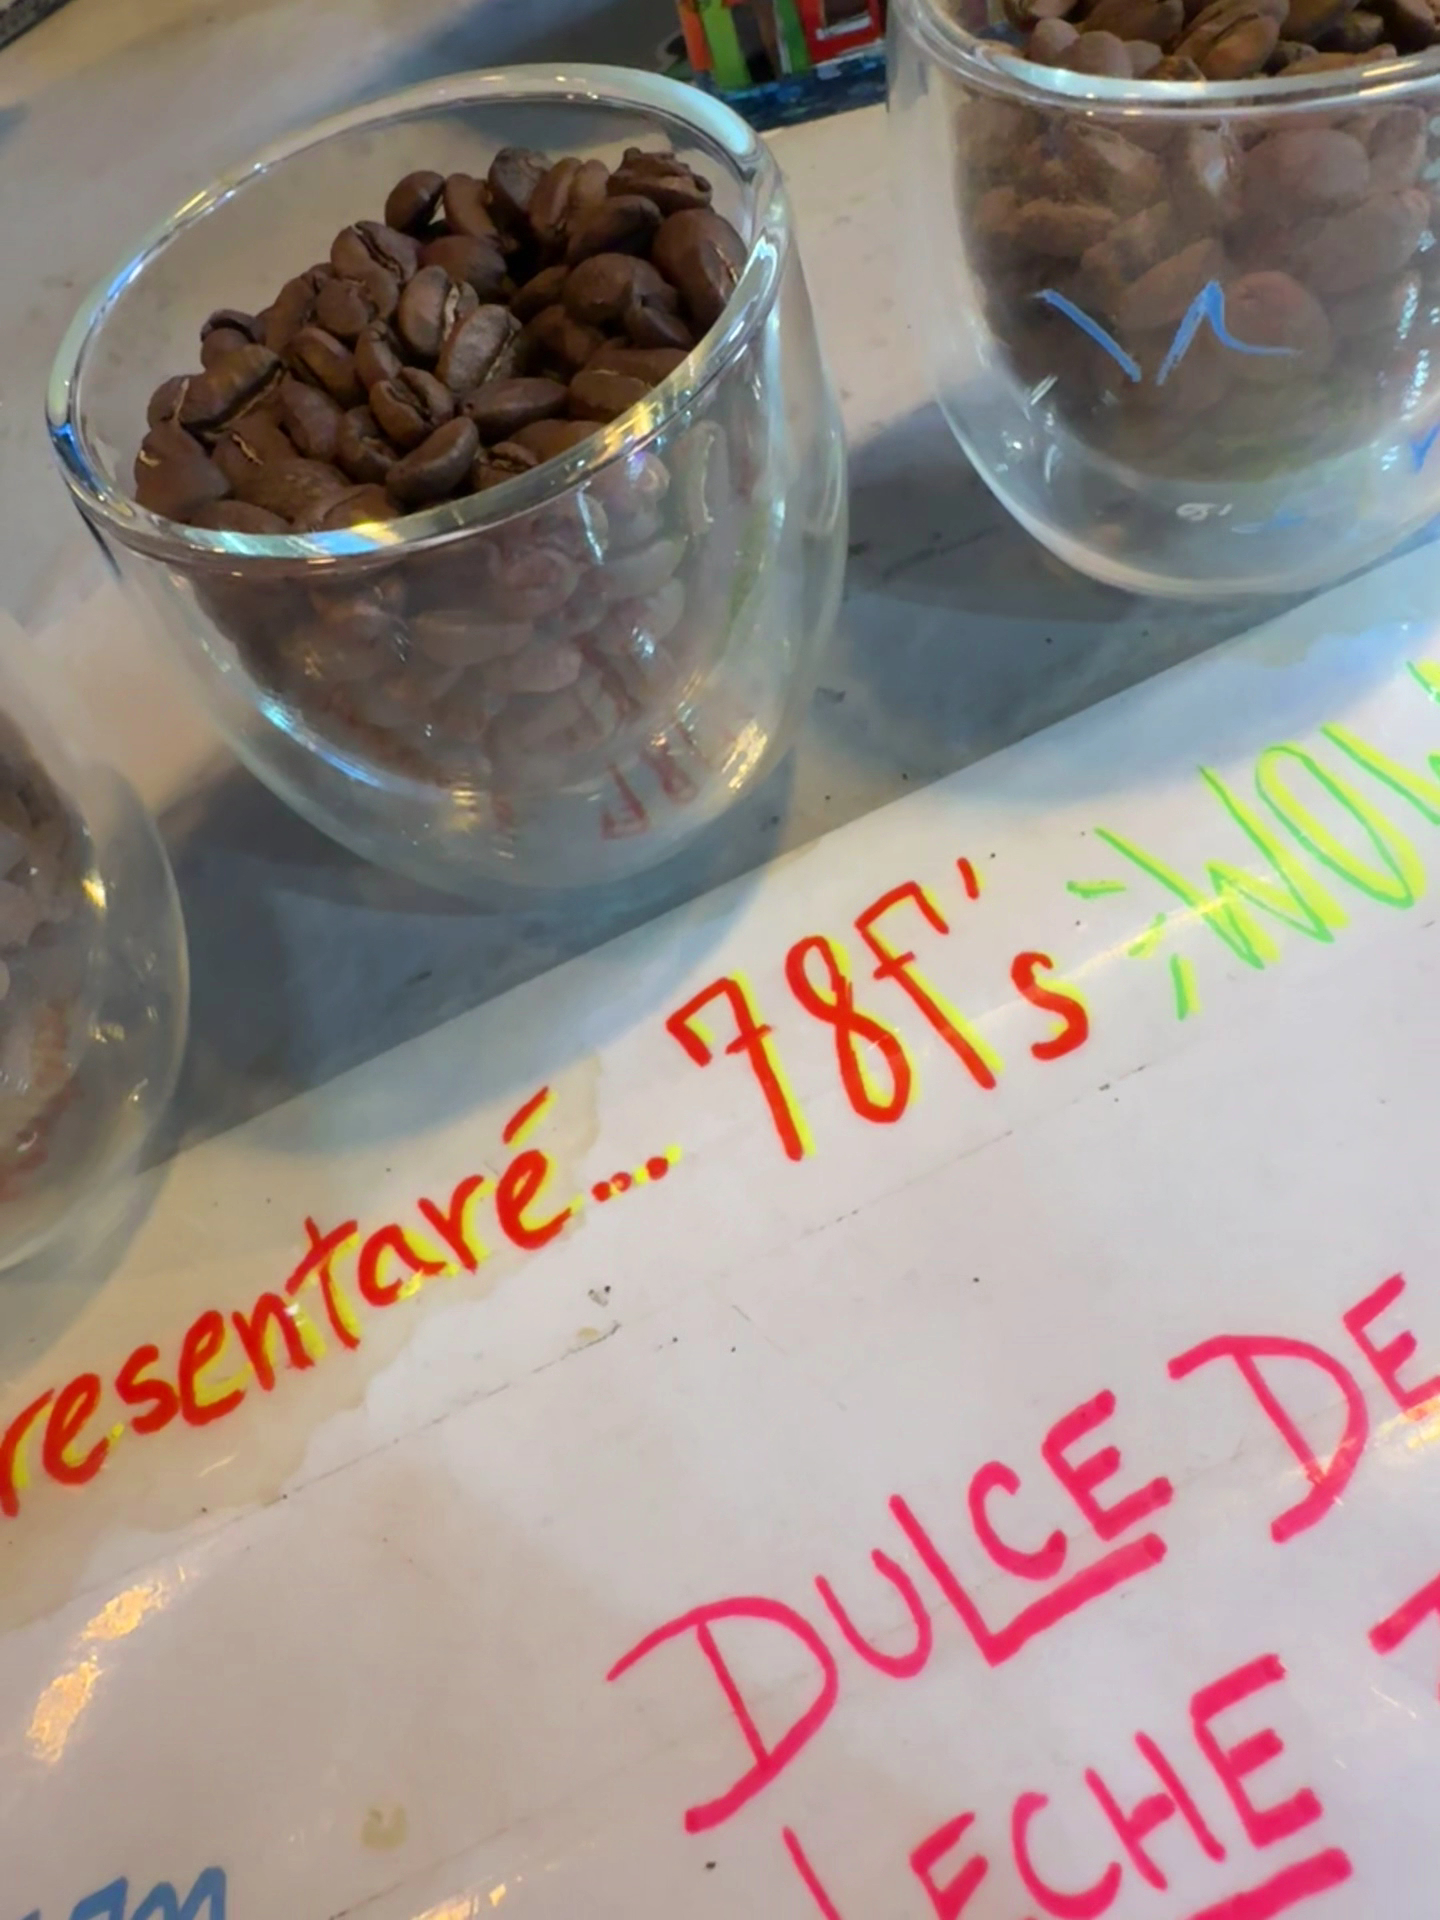 resentaré... 78F's ¡WOW
DULCE DE
LECHE